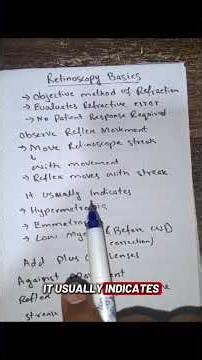 Retinoscopy Basics
→ Objective method of Refraction
→ Evaluates Refractive error
→ No Patient Response Required
Observe Reflex Movement
→ Move Retinoscope streak
with movement
→ Reflex moves with streak
It usually Indicates
→ Hypermetropia
→ Emmetropia
→ Low (Before WD
correction)
Add Plus lenses
Against
Reflex
streak
IT USUALLY INDICATES